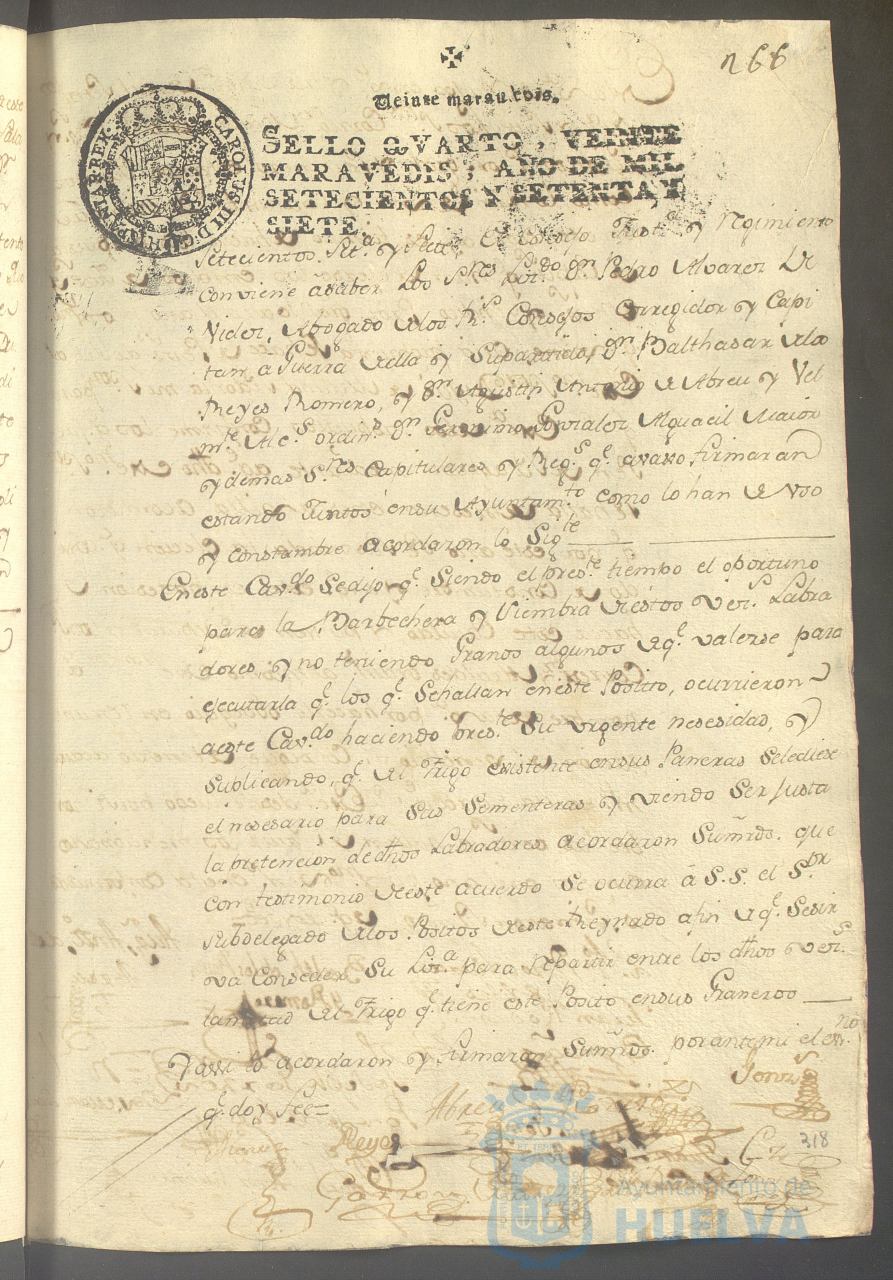 266
Veinte marauedis.
SELLO QVARTO, VEINTE
MARAVEDIS, AÑO DE MIL
SETECIENTOS Y SETENTA Y
SIETE.
CAROLUS III D G HISPANIAR REX
Setecientos Set.ª y Siete el Consejo Just.ª y Regimiento
Conviene asaber Los S.res Liz.do Dn Pedro Alvarez De
Vides, Abogado Delos R.s Consejos Corregidor y Capi
tan, a Guerra Della y Supartido, Dn Balthasar Delos
Reyes Romero, y Dn Agustin Antonio de Abreu y Vel
Alc.s ordin.s Dn Geronimo Gonzalez Alguacil Maior
y demas S.res Capitulares y Reg.s q.e avaxo firmaran
estando Juntos ensu Ayuntam.to como lo han de Vso
y constumbre acordaron lo Sig.te
Eneste Cav.do Sedijo q.e Siendo el pres.te tiempo el oportuno
para la Barbechera y Siembra destos Vez.s Labra
dores, y no teniendo Granos algunos deq.e valerse para
ejecutarla q.e los q.e Sehallan eneste Posito, ocurrieron
aeste Cav.do haciendo pres.te Su urgente nesesidad, y
suplicando, q.e del Trigo existente ensus Paneras Selediese
el nesesario para Sus Sementeras y viendo Ser Justa
la pretencion dedhos Labradores acordaron Sumrds. que
con testimonio deeste acuerdo Se ocurra á S.S. el S.or
Subdelegado Delos Positos deeste Reynado afin deq.e Sesir
va Conseder Su Liz.ª para Repartir entre los dhos Vez.s
lamitad del Trigo q.e tiene este Posito ensus Graneros
y assi lo acordaron y firmaron Sumrds. porantemi el ess.no
q.e doy fee=
Abreu
Reyes
Garron
318
Ayuntamiento de
HUELVA